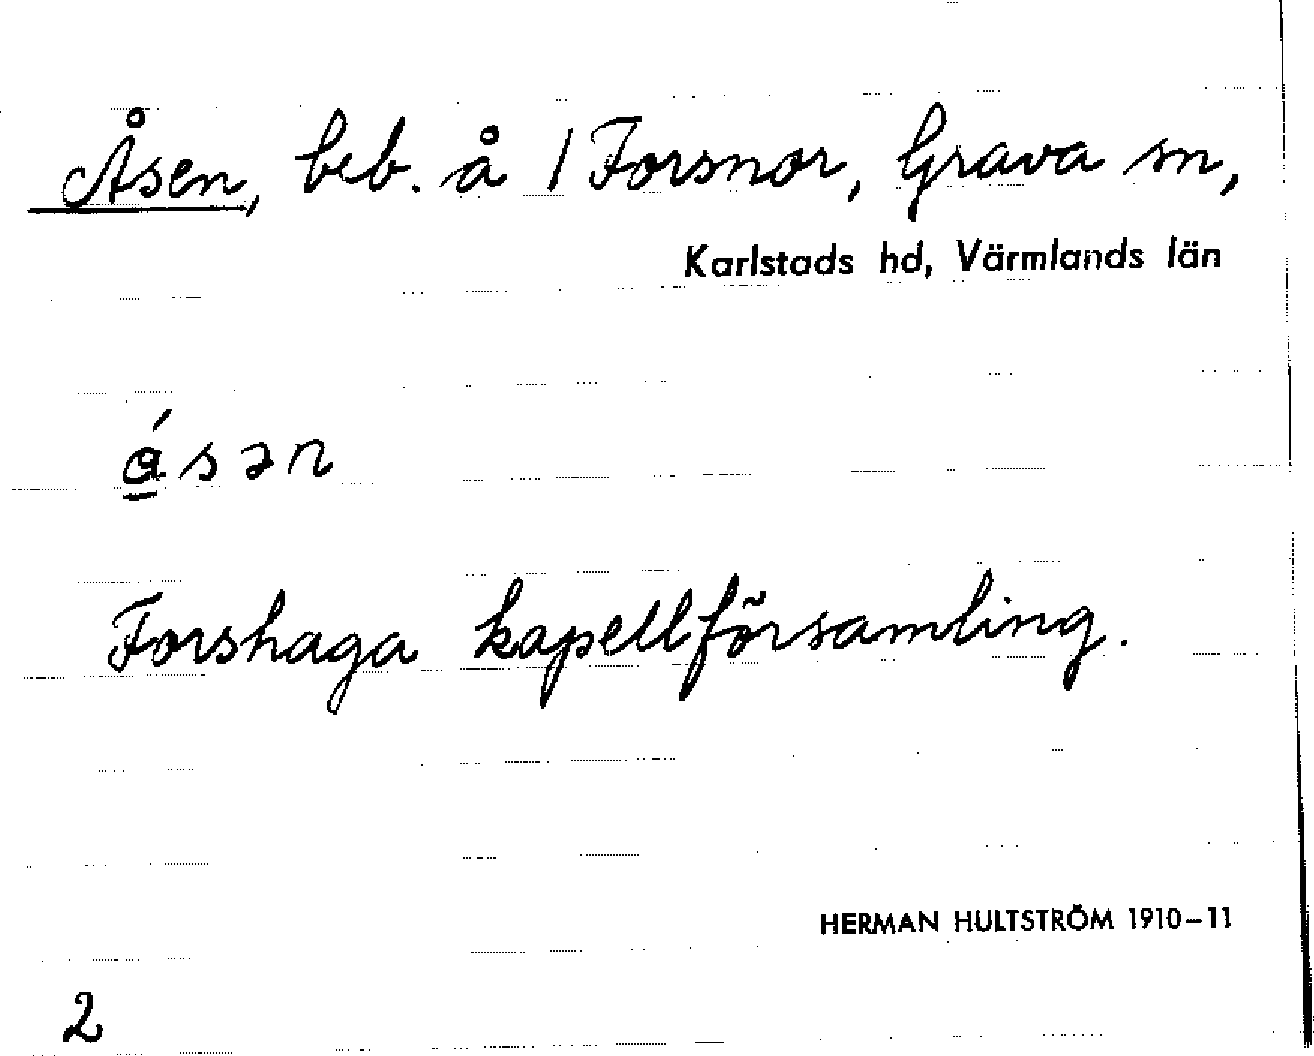 Åsen, beb. å 1 Forsnor, Grava sn,
Karlstads hd, Värmlands län
ásən
Forshaga kapellförsamling.
HERMAN HULTSTRÖM 1910–11
2